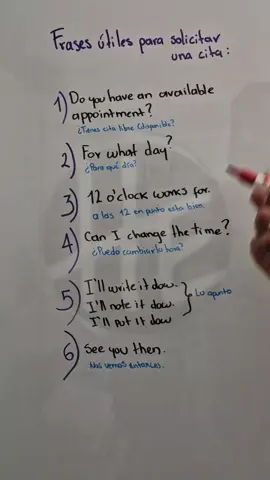 Frases útiles para solicitar
una cita:
1) Do you have an available
appointment?
¿Tienes cita libre (disponible)?
2) For what day?
¿Para qué día?
3) 12 o'clock works for.
a las 12 en punto esta bien.
4) Can I change the time?
¿Puedo cambiar la hora?
5) I'll write it dow.
I'll note it dow.
I'll put it dow
Lo apunto
6) See you then.
Nos vemos entonces.